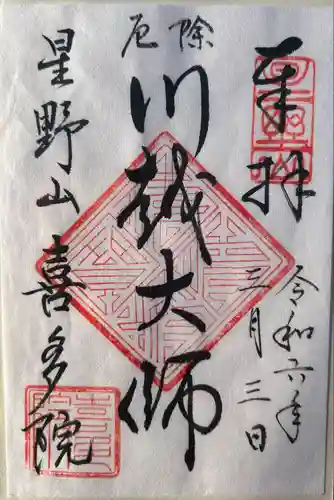 奉拝
令和六年
三月三日
厄除
川越大師
星野山
喜多院